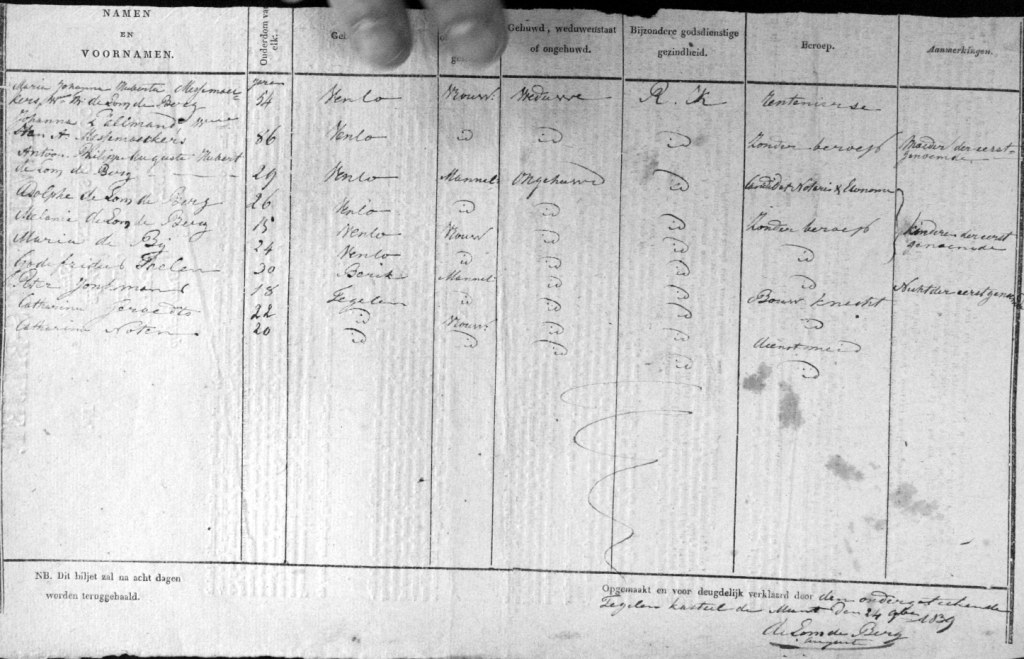 NAMEN
EN
VOORNAMEN.
Ouderdom van elk.
Gehuwd, weduwenstaat
of ongehuwd.
Bijzondere godsdienstige
gezindheid.
Beroep.
Aanmerkingen.
jaren
Maria Johanna Huberta Messemae-
kers, We de Lom de Berg 54 Venlo Vrouw. Weduwe R. K Rentenierse
Johanna Wwe
A Messemaekers 86 Venlo Zonder beroep Moeder der eerst-
genoemde
Antoon Philipp Auguste Hubert
de Lom de Berg 29 Venlo Mannel: Ongehuwd Candidat Notaris & Econom
Adolphe de Lom de Berg 26 Venlo
Melanie de Lom de Berg 15 Venlo Vrouw Zonder beroep Kinderen der eerst
genoemde
Maria de 24 Venlo
Godefridus 30 Mannel
Peter 18 Tegelen Bouw knecht
Catharina 22 Vrouw.
Catharina Noten 20 dienstmeid
NB. Dit biljet zal na acht dagen
worden teruggehaald.
Opgemaakt en voor deugdelijk verklaard door den ondergeteekende
Tegelen kasteel de Munt den 24 9ber 1839
de Lom de Berg
August